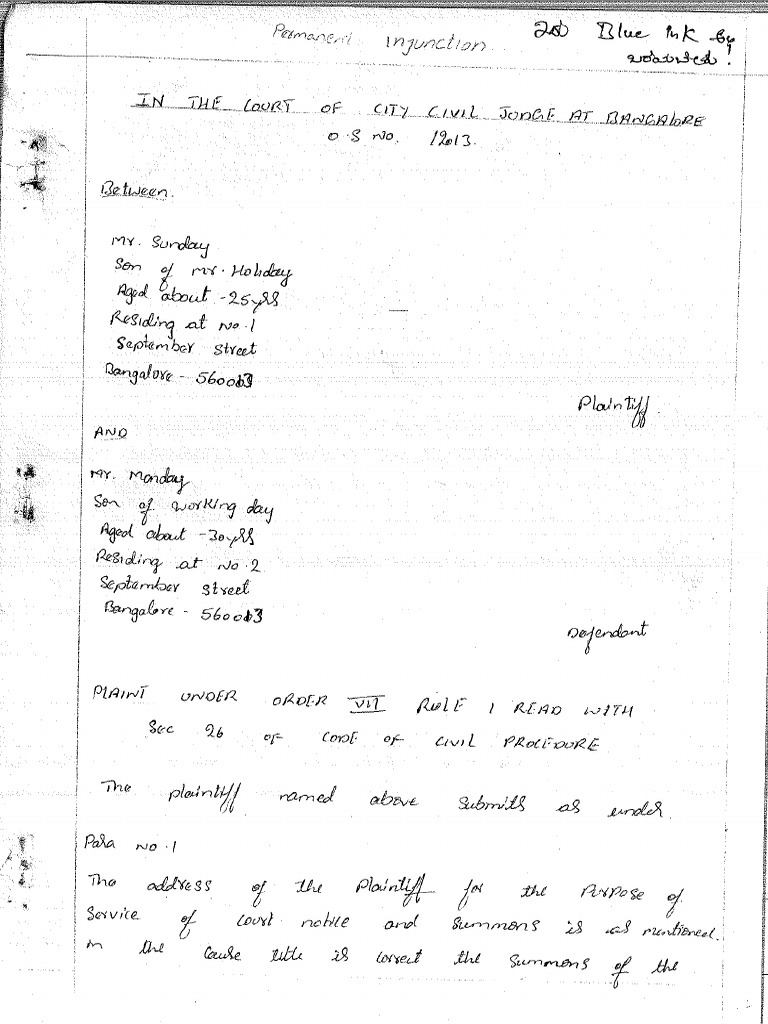 Permanent Injunction
Blue ink by
IN THE COURT OF CITY CIVIL JUDGE AT BANGALORE
O.S NO. /2013.
Between
Mr. Sunday
Son of Mr. Holiday
Aged about -25yrs
Residing at No.1
September Street
Bangalore - 560013
Plaintiff
AND
Mr. Monday
Son of working day
Aged about -30yrs
Residing at No.2
September Street
Bangalore - 560013
Defendant
PLAINT UNDER ORDER VII RULE 1 READ WITH
Sec 26 OF CODE OF CIVIL PROCEDURE
The plaintiff named above submits as under
Para No.1
The address of the Plaintiff for the Purpose of
Service of court notice and Summons is as mentioned.
in the Cause title is correct the Summons of the